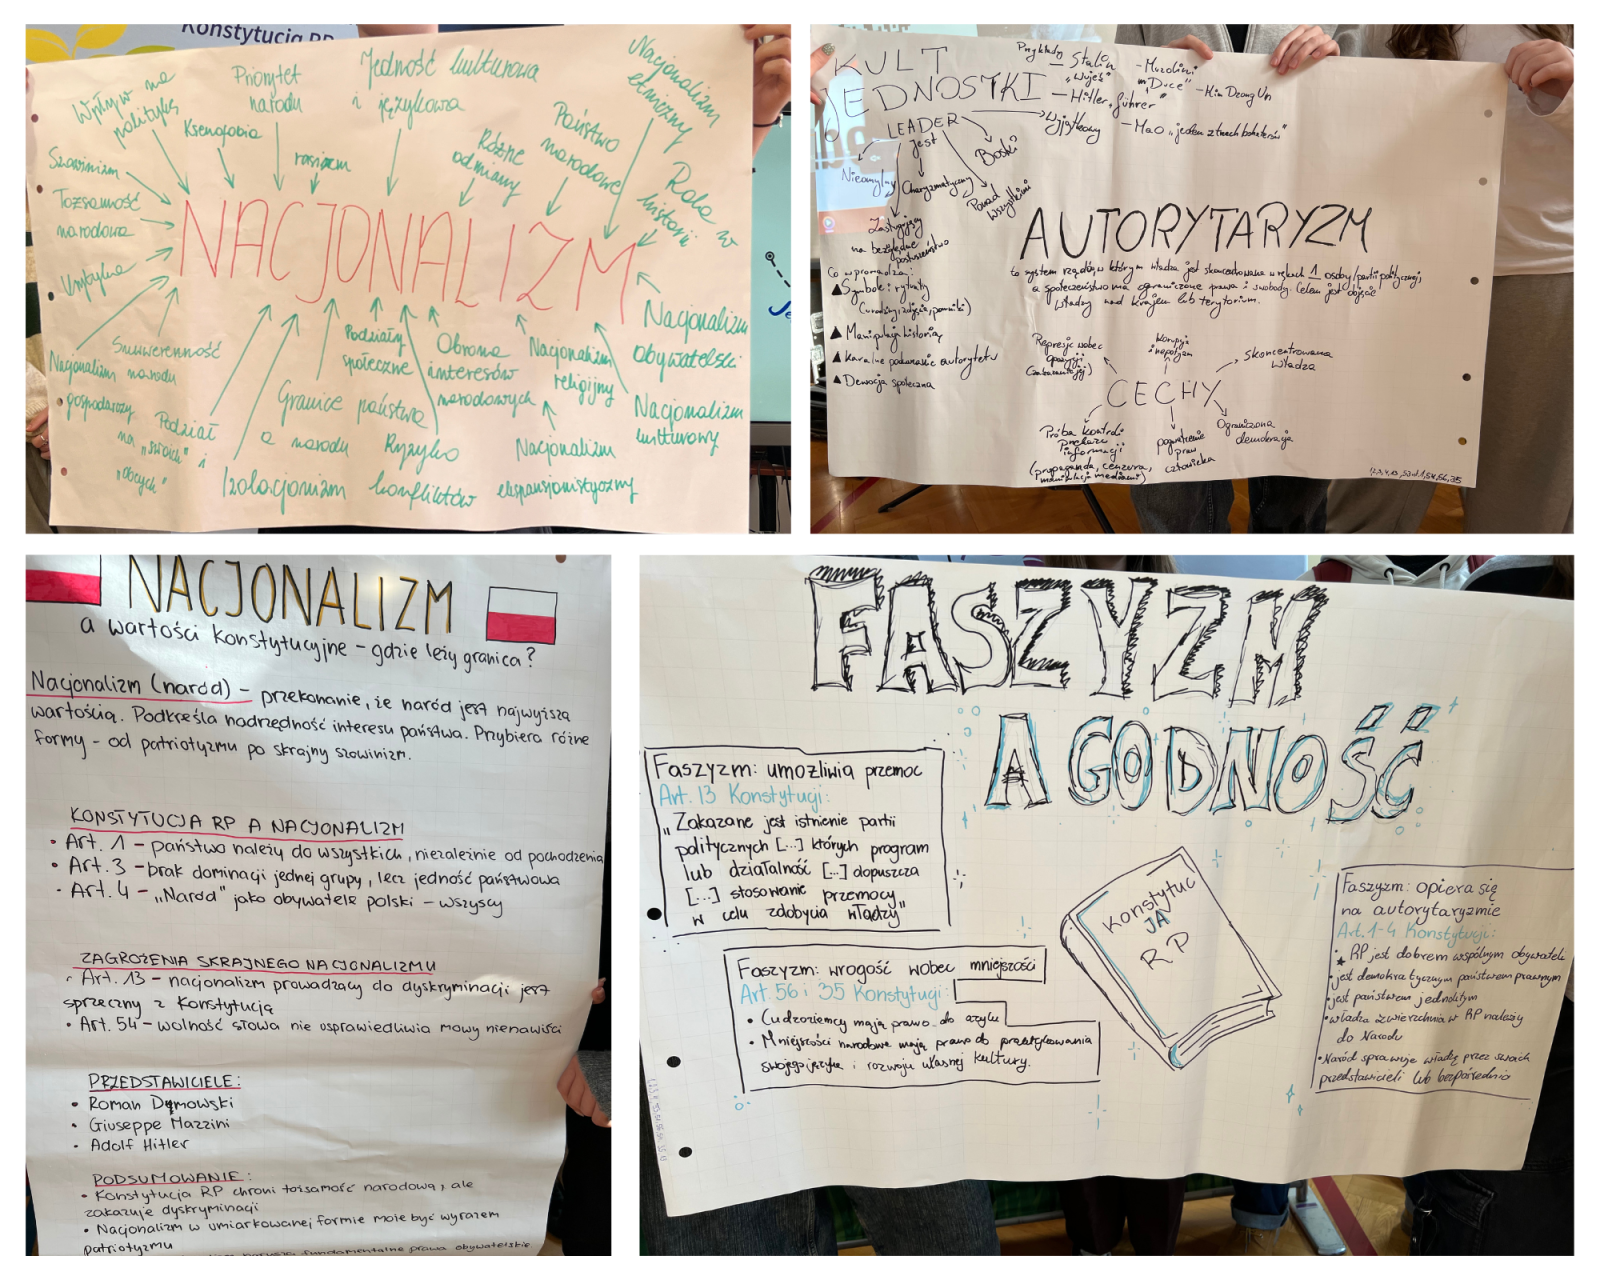 Konstytucja RP
Wpływ na
politykę
Priorytet
narodu
Jedność kulturowa
i językowa
Nacjonalizm
etniczny
Ksenofobia
rasizm
Różne
odmiany
Państwo
narodowe
Rola w
historii
Szowinizm
Tożsamość
narodowa
NACJONALIZM
Suwerenność
narodu
Nacjonalizm
gospodarczy
Podział
na „swoich” i
„obcych”
Izolacjonizm
Granice państwa
a narodu
Podziały
społeczne
Ryzyko
konfliktów
Obrona
interesów
narodowych
Nacjonalizm
religijny
Nacjonalizm
ekspansjonistyczny
Nacjonalizm
obywatelski
Nacjonalizm
kulturowy
KULT
JEDNOSTKI
Przykłady
— Stalin
„Wujek”
— Hitler „führer”
- Muzolini
„Duce”
- Kim Dzong Un
- Mao „jeden z trzech bohaterów”
LEADER
jest
Wyjątkowy
Boski
Ponad
wszystkimi
Charyzmatyczny
Nieomylny
Zasługujący
na bezględne
posłuszeństwo
Co wprowadza:
▲ Symbole i rytuały
(urodziny, zdjęcia, pomniki)
▲ Manipulacja historią
▲ Karalne podważanie autorytetu
▲ Dewocja społeczna
AUTORYTARYZM
to system rządów, w którym władza jest skoncentrowana w rękach 1 osoby/partii politycznej,
a społeczeństwo ma ograniczone prawa i swobody. Celem jest objęcie
władzy nad krajem lub terytorium.
Represje wobec
opozycji
korupcja
i nepotyzm
skoncentrowana
władza
CECHY
Próba kontroli
przekazu
informacji
(propaganda, cenzura,
manipulacja mediami)
pogwałcenie
praw
człowieka
Ograniczona
demokracja
NACJONALIZM
a wartości konstytucyjne – gdzie leży granica?
Nacjonalizm (naród) – przekonanie, że naród jest najwyższą
wartością. Podkreśla nadrzędność interesu państwa. Przybiera różne
formy – od patriotyzmu po skrajny szowinizm.
KONSTYTUCJA RP A NACJONALIZM
• Art. 1 – państwo należy do wszystkich, niezależnie od pochodzenia
• Art. 3 – brak dominacji jednej grupy, lecz jedność państwowa
• Art. 4 – „Naród” jako obywatele polski – wszyscy
ZAGROŻENIA SKRAJNEGO NACJONALIZMU
• Art. 13 – nacjonalizm prowadzący do dyskryminacji jest
sprzeczny z Konstytucją
• Art. 54 – wolność słowa nie usprawiedliwia mowy nienawiści
PRZEDSTAWICIELE:
• Roman Dmowski
• Giuseppe Mazzini
• Adolf Hitler
PODSUMOWANIE:
• Konstytucja RP chroni tożsamość narodową, ale
zakazuje dyskryminacji
• Nacjonalizm w umiarkowanej formie może być wyrazem
patriotyzmu
fundamentalne prawa obywatelskie
FASZYZM
A GODNOŚĆ
Faszyzm: umożliwia przemoc
Art. 13 Konstytucji:
„Zakazane jest istnienie partii
politycznych [...] których program
lub działalność [...] dopuszcza
[...] stosowanie przemocy
w celu zdobycia władzy”
Faszyzm: wrogość wobec mniejszości
Art. 56 i 35 Konstytucji:
• Cudzoziemcy mają prawo do azylu
• Mniejszości narodowe mają prawo do praktykowania
swojego języka i rozwoju własnej kultury.
Konstytuc
JA
RP
Faszyzm: opiera się
na autorytaryzmie
Art. 1-4 Konstytucji:
• RP jest dobrem wspólnym obywateli
• jest demokratycznym państwem prawnym
• jest państwem jednolitym
• władza zwierzchnia w RP należy
do Narodu
• Naród sprawuje władzę przez swoich
przedstawicieli lub bezpośrednio